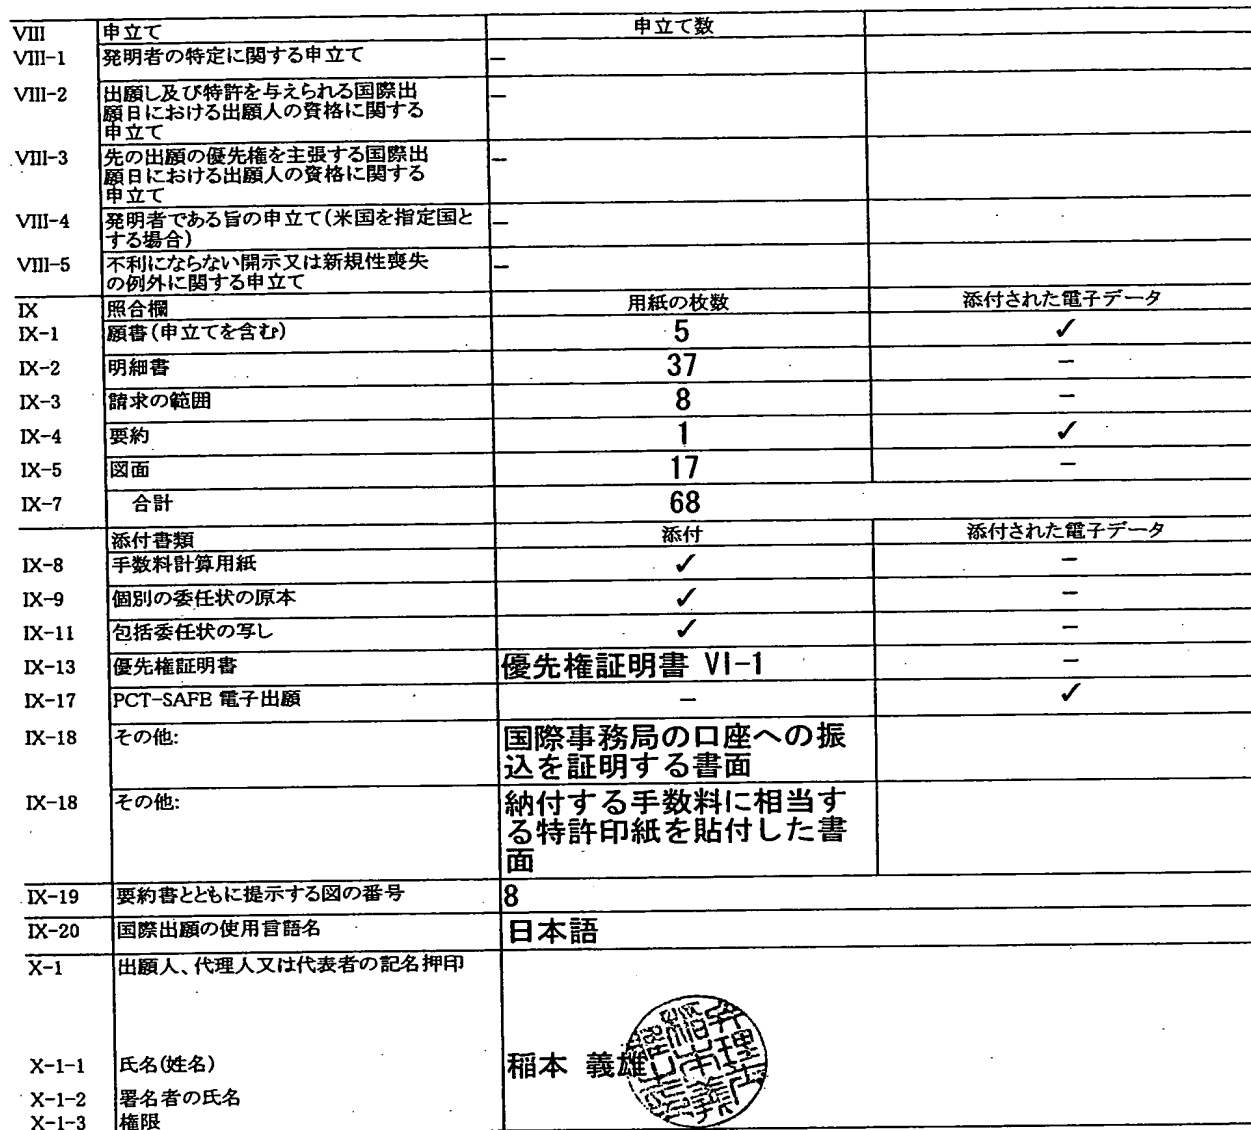 VIII 申立て 申立て数
VIII-1 発明者の特定に関する申立て –
VIII-2 出願し及び特許を与えられる国際出 –
願日における出願人の資格に関する
申立て
VIII-3 先の出願の優先権を主張する国際出 –
願日における出願人の資格に関する
申立て
VIII-4 発明者である旨の申立て(米国を指定国と –
する場合)
VIII-5 不利にならない開示又は新規性喪失 –
の例外に関する申立て
IX 照合欄 用紙の枚数 添付された電子データ
IX-1 願書(申立てを含む) 5 ✓
IX-2 明細書 37 –
IX-3 請求の範囲 8 –
IX-4 要約 1 ✓
IX-5 図面 17 –
IX-7 合計 68
添付書類 添付 添付された電子データ
IX-8 手数料計算用紙 ✓ –
IX-9 個別の委任状の原本 ✓ –
IX-11 包括委任状の写し ✓ –
IX-13 優先権証明書 優先権証明書 VI-1 –
IX-17 PCT-SAFE 電子出願 – ✓
IX-18 その他: 国際事務局の口座への振
込を証明する書面
IX-18 その他: 納付する手数料に相当す
る特許印紙を貼付した書
面
IX-19 要約書とともに提示する図の番号 8
IX-20 国際出願の使用言語名 日本語
X-1 出願人、代理人又は代表者の記名押印
X-1-1 氏名(姓名) 稲本 義雄
X-1-2 署名者の氏名
X-1-3 権限